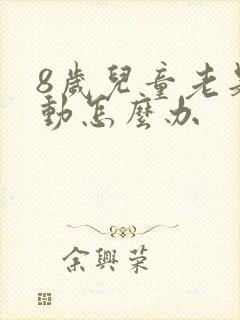 8歲兒童老是
動怎麼办
余興荣